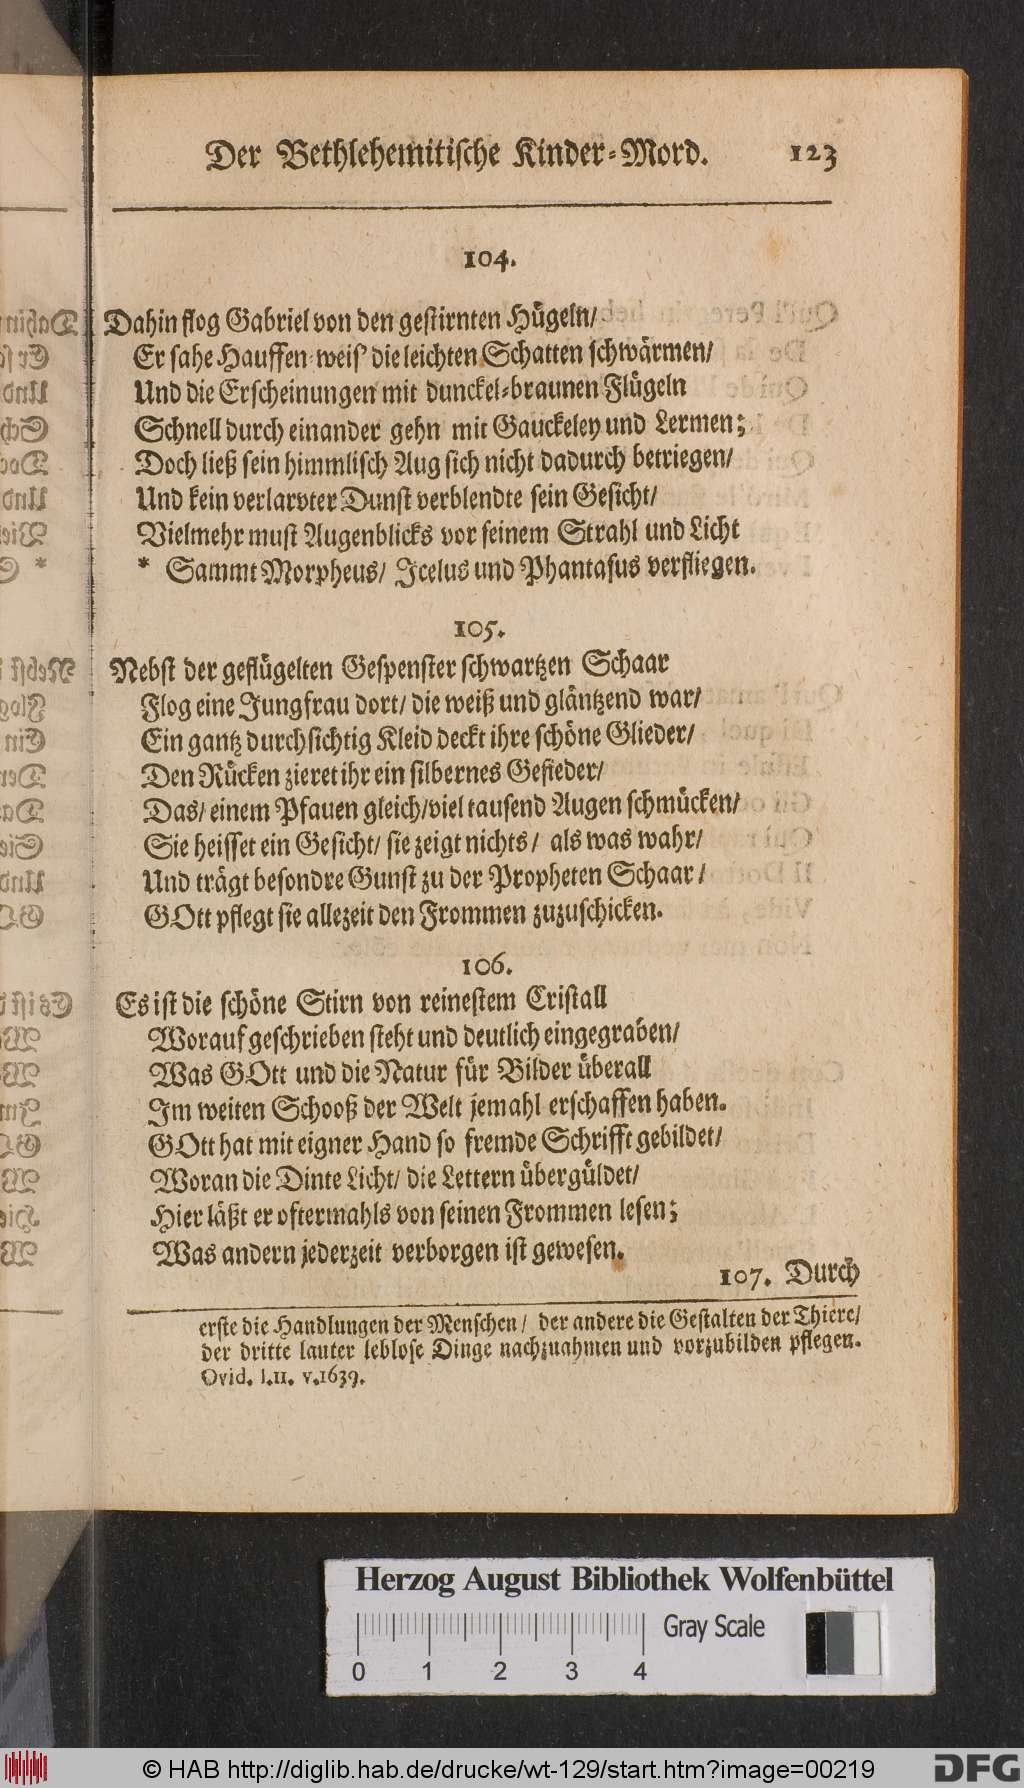 Der Bethlehemitische Kinder-Mord. 123
104.
Dahin flog Gabriel von den gestirnten Hügeln/
Er sahe Hauffen-weis' die leichten Schatten schwärmen/
Und die Erscheinungen mit dunckel-braunen Flügeln
Schnell durch einander gehn mit Gauckeley und Lermen;
Doch ließ sein himmlisch Aug sich nicht dadurch betriegen/
Und kein verlarvter Dunst verblendte sein Gesicht/
Vielmehr must Augenblicks vor seinem Strahl und Licht
* Sammt Morpheus/ Icelus und Phantasus verfliegen.
105.
Nebst der geflügelten Gespenster schwartzen Schaar
Flog eine Jungfrau dort/ die weiß und gläntzend war/
Ein gantz durchsichtig Kleid deckt ihre schöne Glieder/
Den Rücken zieret ihr ein silbernes Gefieder/
Das/ einem Pfauen gleich/ viel tausend Augen schmücken/
Sie heisset ein Gesicht/ sie zeigt nichts/ als was wahr/
Und trägt besondre Gunst zu der Propheten Schaar/
GOtt pflegt sie allezeit den Frommen zuzuschicken.
106.
Es ist die schöne Stirn von reinestem Cristall
Worauf geschrieben steht und deutlich eingegraben/
Was GOtt und die Natur für Bilder überall
Im weiten Schooß der Welt jemahl erschaffen haben.
GOtt hat mit eigner Hand so fremde Schrifft gebildet/
Woran die Dinte Licht/ die Lettern übergüldet/
Hier läßt er oftermahls von seinen Frommen lesen;
Was andern jederzeit verborgen ist gewesen.
107. Durch
erste die Handlungen der Menschen/ der andere die Gestalten der Thiere/
der dritte lauter leblose Dinge nachzuahmen und vorzubilden pflegen.
Ovid. l.11. v.1639.
Herzog August Bibliothek Wolfenbüttel
Gray Scale
0 1 2 3 4
© HAB http://diglib.hab.de/drucke/wt-129/start.htm?image=00219
DFG